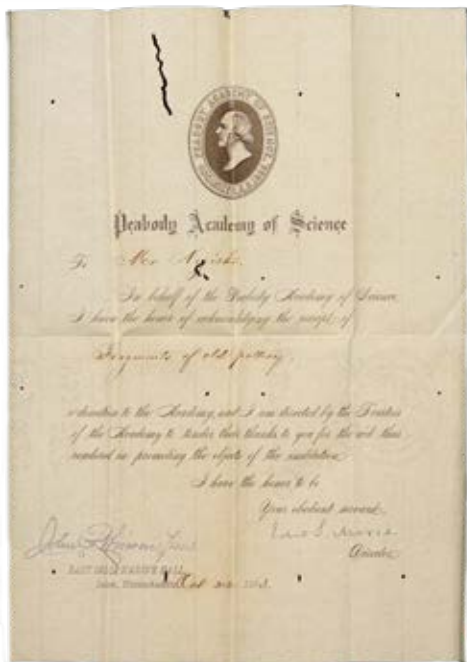 PEABODY ACADEMY OF SCIENCE
Peabody Academy of Science
To Mr.
In behalf of the Peabody Academy of Science
I have the honor of acknowledging the receipt of
Fragments of old pottery,
a donation to the Academy, and I am directed by the Trustees
of the Academy to tender their thanks to you for the aid thus
rendered in promoting the objects of the institution
I have the honor to be
Your obedient servant,
Edw. S. Morse
Director
John Robinson
EAST INDIA MARINE HALL
Salem, Massachusetts